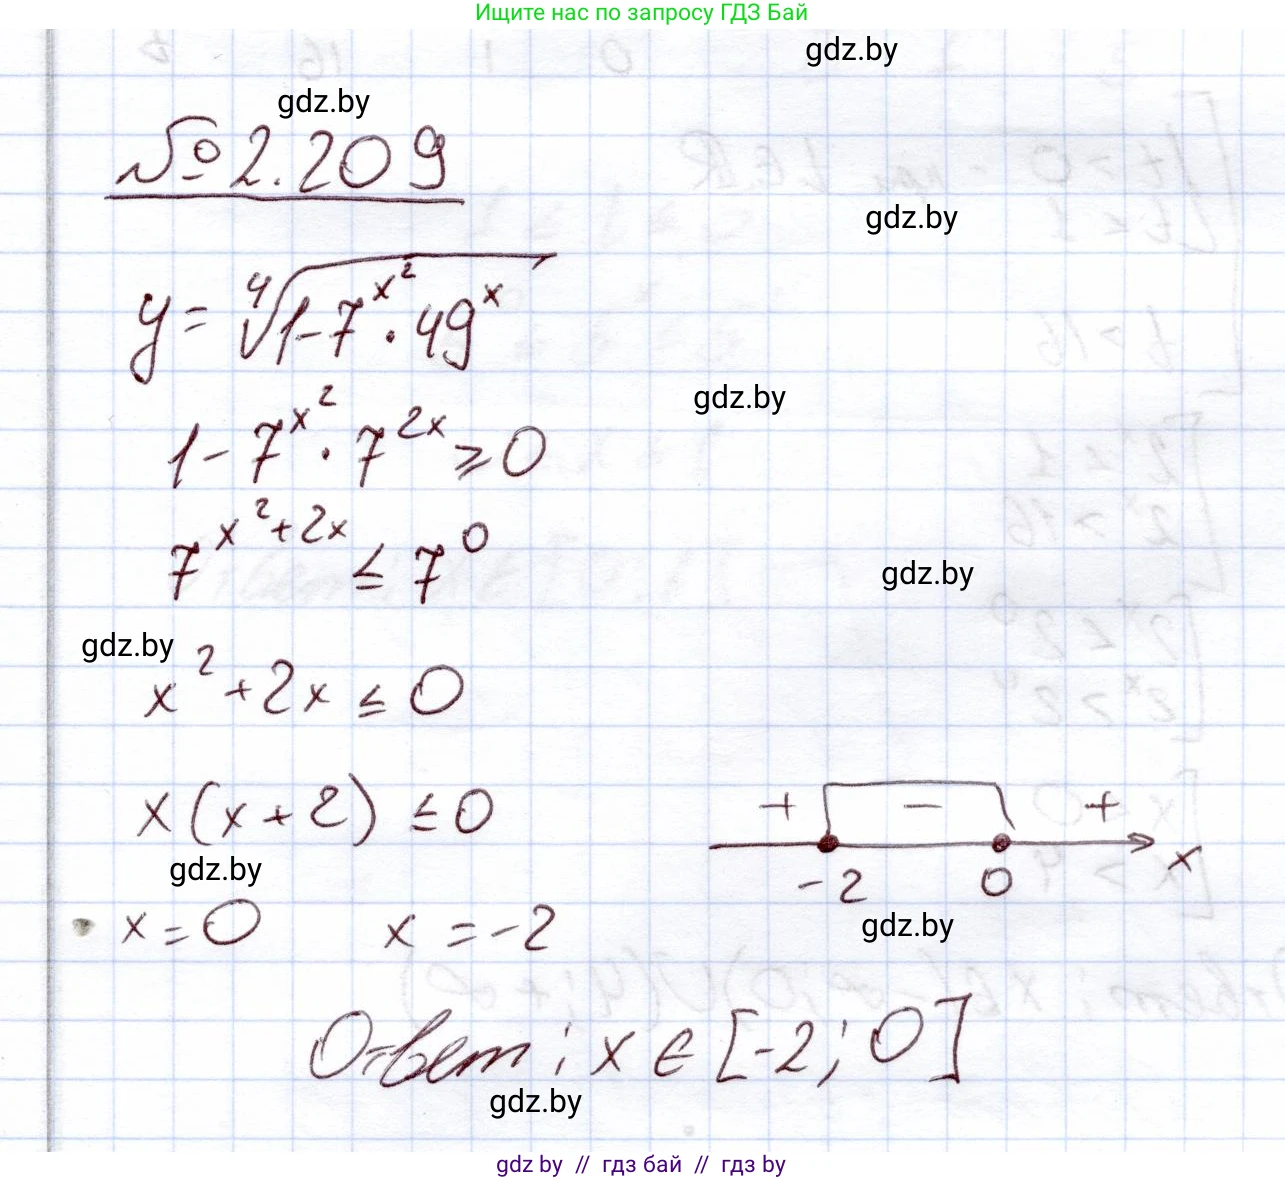 Ищите нас по запросу ГДЗ Бай
gdz.by
gdz.by
№ 2.209
gdz.by
y = ∜(1-7^(x^2) · 49^x)
gdz.by
1 - 7^(x^2) · 7^(2x) ⩾ 0
7^(x^2+2x) ≤ 7^0
gdz.by
gdz.by
x^2 + 2x ≤ 0
x(x+2) ≤ 0
+ − +
-2 0 x
gdz.by
x = 0 x = -2
gdz.by
Ответ: x ∈ [-2; 0]
gdz.by
gdz by // гдз бай // гдз by